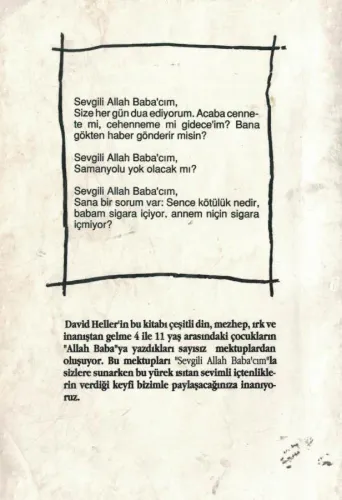 Sevgili Allah Baba'cım,
Size her gün dua ediyorum. Acaba cenne-
te mi, cehenneme mi gidece'im? Bana
gökten haber gönderir misin?
Sevgili Allah Baba'cım,
Samanyolu yok olacak mı?
Sevgili Allah Baba'cım,
Sana bir sorum var: Sence kötülük nedir,
babam sigara içiyor, annem niçin sigara
içmiyor?
David Heller'in bu kitabı çeşitli din, mezhep, ırk ve
inanıştan gelme 4 ile 11 yaş arasındaki çocukların
"Allah Baba"ya yazdıkları sayısız mektuplardan
oluşuyor. Bu mektupları "Sevgili Allah Baba'cım"la
sizlere sunarken bu yürek ısıtan sevimli içtenlikle-
rin verdiği keyfi bizimle paylaşacağınıza inanıyo-
ruz.